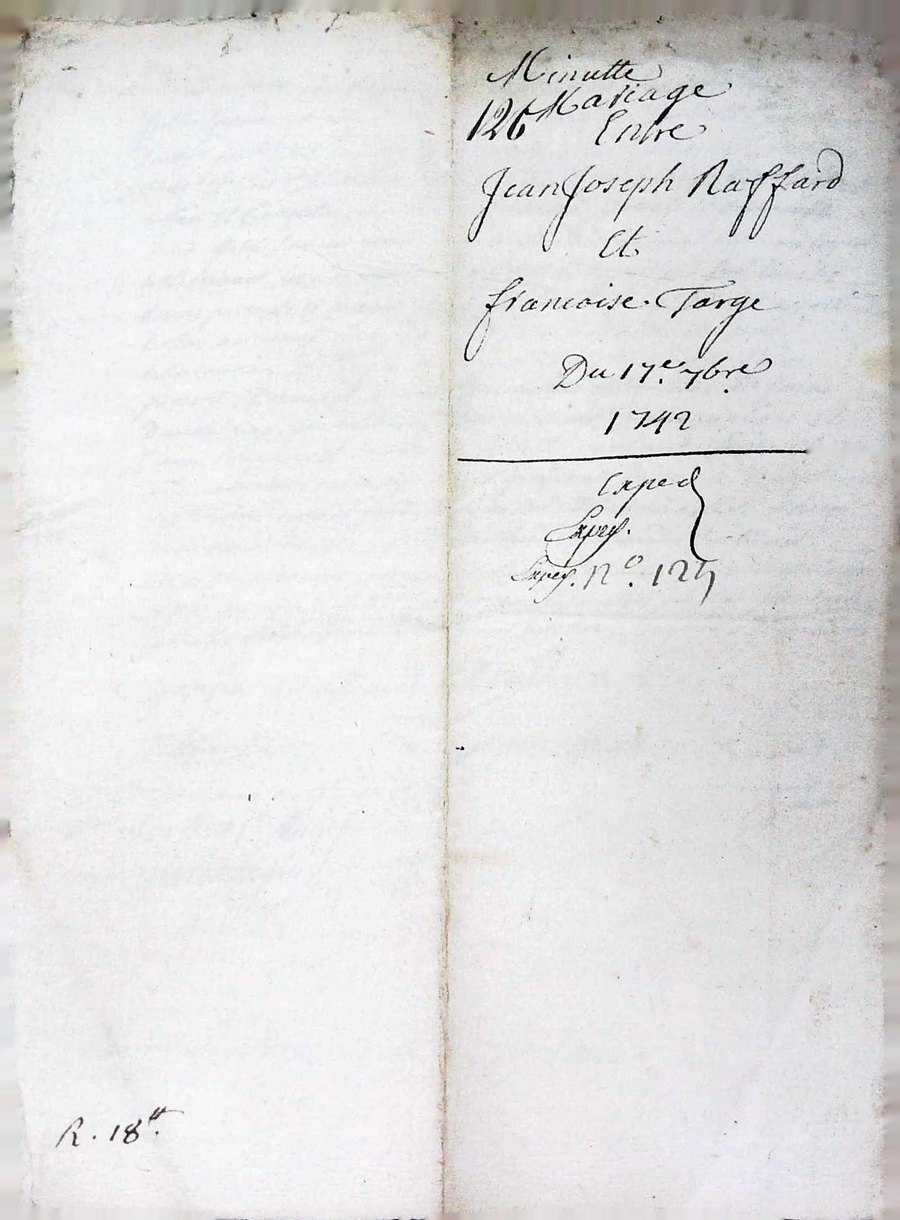 Minutte
126 Mariage
Entre
Jean Joseph Raffard
Et
francoise Targe
Du 17.e 7bre
1742
Exped
Expej.
Expej. No. 125
R. 18tt.